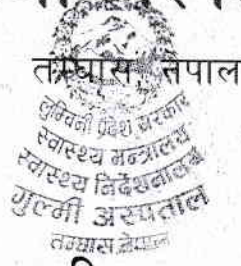 तम्घास नेपाल
लुम्बिनी प्रदेश सरकार
स्वास्थ्य मन्त्रालय
स्वास्थ्य निर्देशनालय
गुल्मी अस्पताल
तम्घास,नेपाल